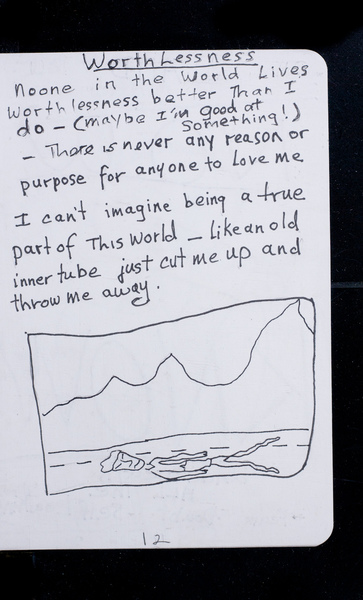 WorthLessness
Noone in the World Lives
Worthlessness better Than I
do - (maybe I'm good at
Something!)
- There is never any reason or
purpose for anyone to Love me
I can't imagine being a true
part of This World - Like an old
inner tube just cut me up and
throw me away.
12